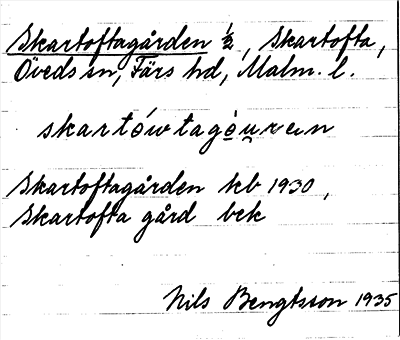 Skartoftagården 1/2, Skartofta,
Öveds sn, Färs hd, Malm. l.
skartówtagò̤u̮ʀɐn
Skartoftagården kb 1930,
Skartofta gård bek
Nils Bengtsson 1935